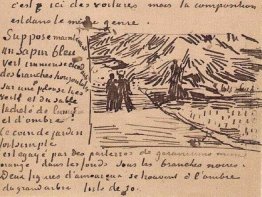 c'est ici des voitures mais la composition
est dans le même genre.
Suppose maintenant
un sapin bleu
vert immense
des branches horizontales
sur une pelouse très
verte et du sable
tacheté de lumière
et d'ombre
Le coin de jardin
fort simple
est égayé par des parterres de geraniums mine
orange dans les fonds sous les branches noires.
Deux figures d'amoureux se trouvent à l'ombre
du grand arbre toile de 30.